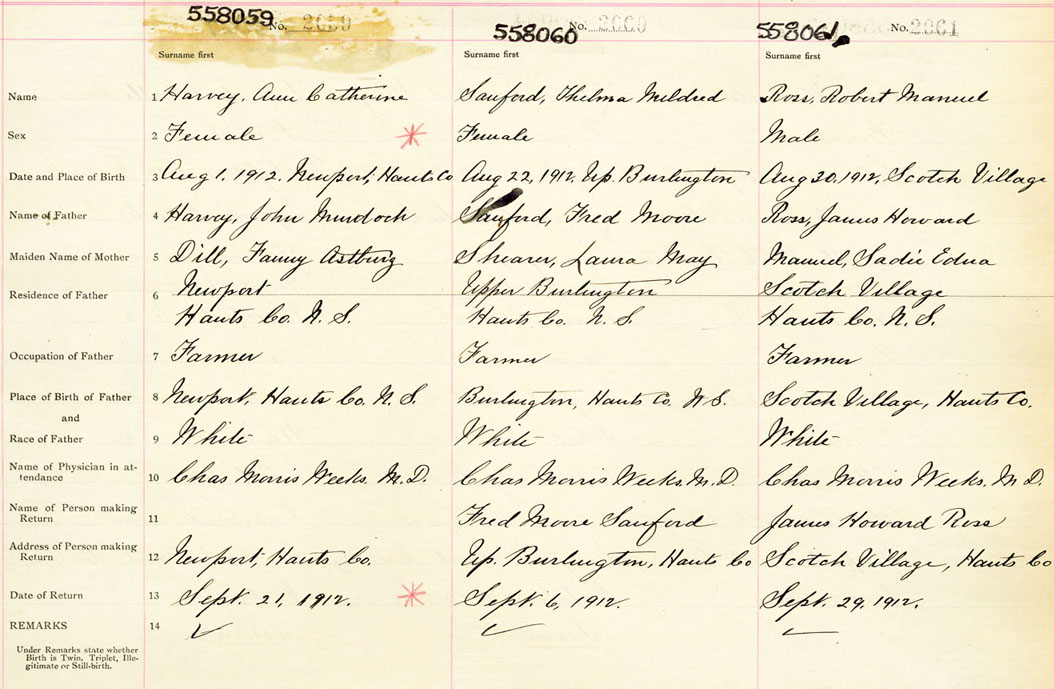 558059 No. 2059 558060 No. 2060 558061 No. 2061
Surname first Surname first Surname first
Name 1 Harvey, Ann Catherine Sanford, Thelma Mildred Ross, Robert Manuel
Sex 2 Female * Female Male
Date and Place of Birth 3 Aug 1. 1912. Newport, Hants Co Aug 22, 1912. Up. Burlington Aug 30, 1912, Scotch Village
Name of Father 4 Harvey, John Murdoch Sanford, Fred Moore Ross, James Howard
Maiden Name of Mother 5 Dill, Fanny Astbury Shearer, Laura May Manuel, Sadie Edna
Residence of Father 6 Newport Upper Burlington Scotch Village
Hants Co. N. S. Hants Co. N. S. Hants Co. N. S.
Occupation of Father 7 Farmer Farmer Farmer
Place of Birth of Father 8 Newport, Hants Co. N. S. Burlington, Hants Co. N. S. Scotch Village, Hants Co.
and
Race of Father 9 White White White
Name of Physician in at-
tendance 10 Chas Morris Weeks. M. D. Chas Morris Weeks. M. D. Chas Morris Weeks. M. D.
Name of Person making
Return 11 Fred Moore Sanford James Howard Ross
Address of Person making
Return 12 Newport, Hants Co. Up. Burlington, Hants Co Scotch Village, Hants Co
Date of Return 13 Sept. 21, 1912. * Sept. 6, 1912. Sept. 29, 1912.
REMARKS 14 ✓ ✓ ✓
Under Remarks state whether
Birth is Twin, Triplet, Ille-
gitimate or Still-birth.